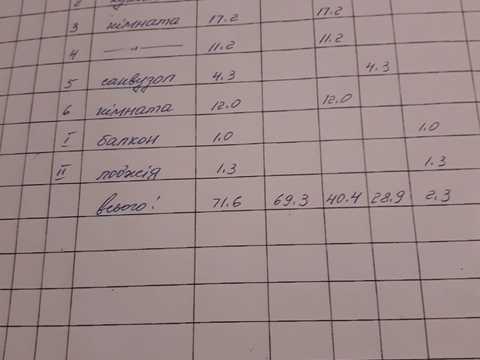 2
3 кімната 17.2 17.2
4 —"— 11.2 11.2
5 санвузол 4.3 4.3
6 кімната 12.0 12.0
I балкон 1.0 1.0
II лоджія 1.3 1.3
всього: 71.6 69.3 40.4 28.9 2.3